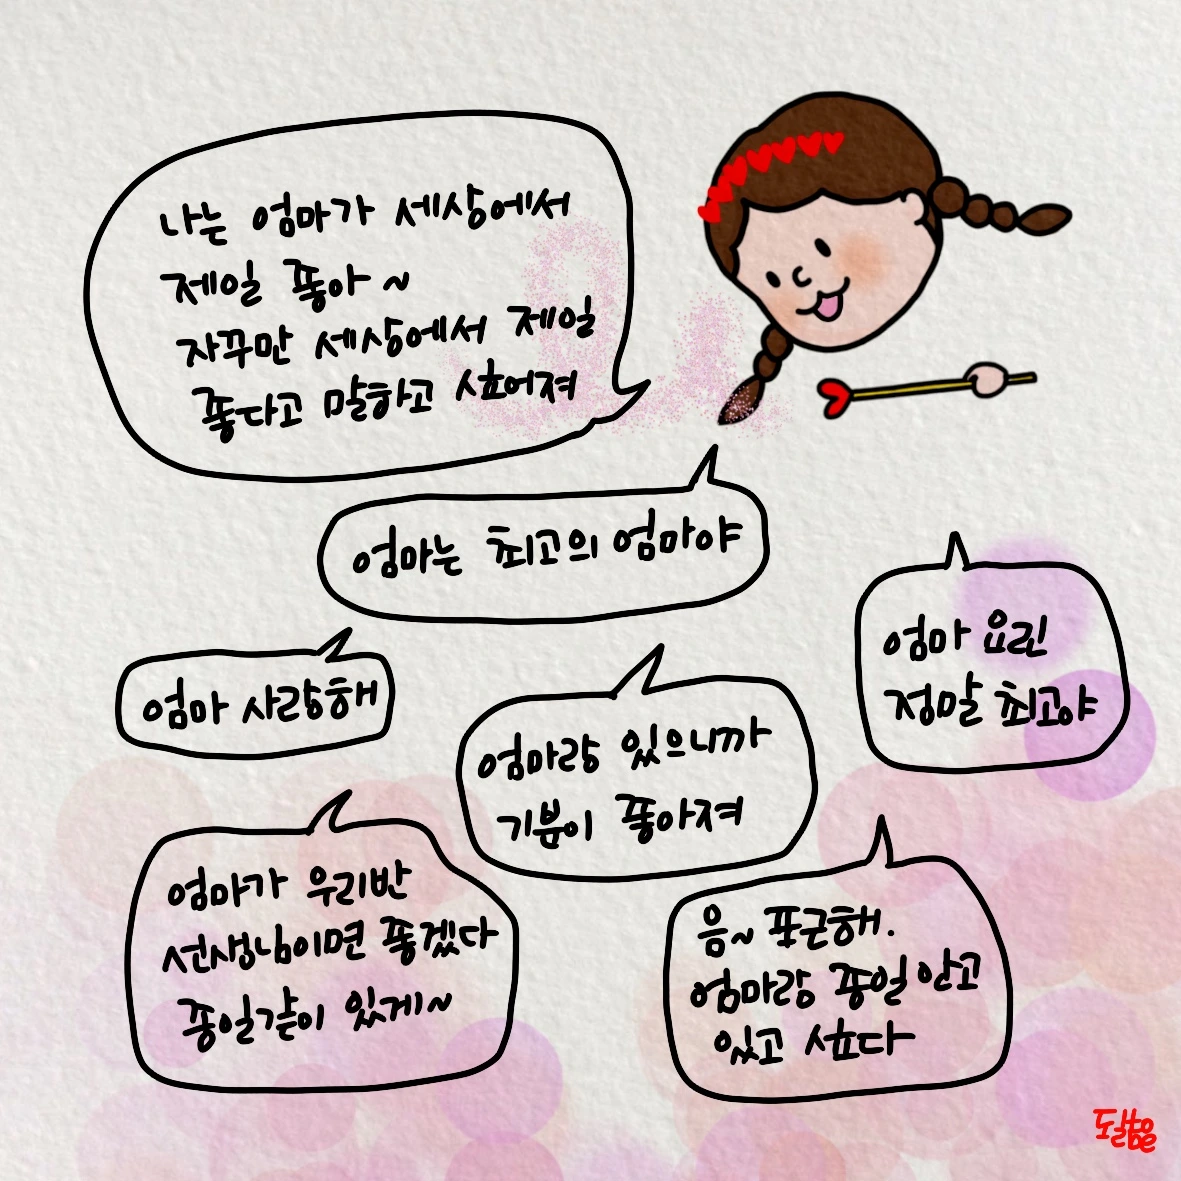 나는 엄마가 세상에서
제일 좋아~
자꾸만 세상에서 제일
좋다고 말하고 싶어져
엄마는 최고의 엄마야
엄마 사랑해
엄마랑 있으니까
기분이 좋아져
엄마 요리
정말 최고야
엄마가 우리반
선생님이면 좋겠다
종일같이 있게~
음~ 포근해.
엄마랑 종일 안고
있고 싶다